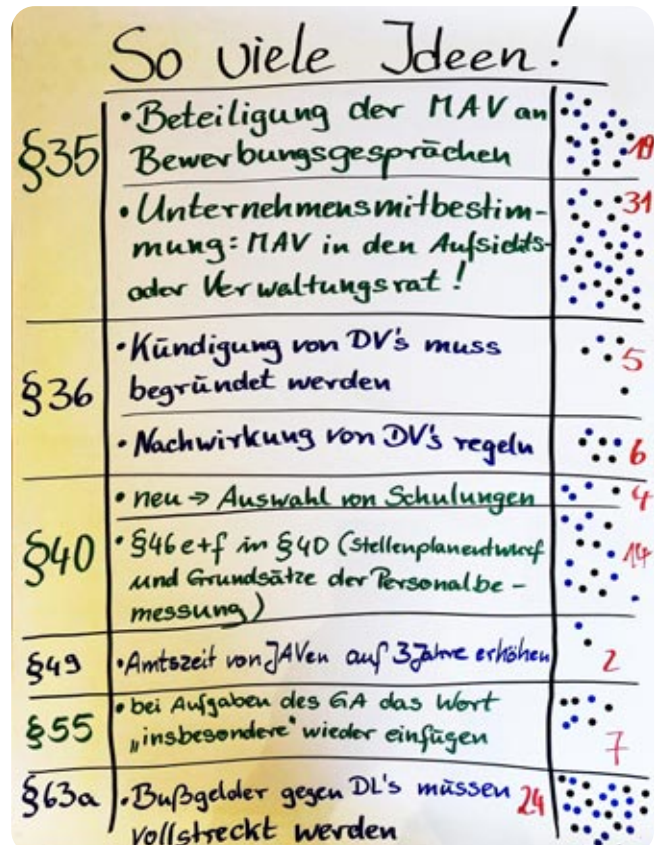 So viele Ideen!
§35
• Beteiligung der MAV an
Bewerbungsgesprächen
19
• Unternehmensmitbestim-
mung: MAV in den Aufsichts-
oder Verwaltungsrat!
31
§36
• Kündigung von DV's muss
begründet werden
5
• Nachwirkung von DV's regeln
6
§40
• neu → Auswahl von Schulungen
4
• §46 e+f in §40 (Stellenplanentwurf
und Grundsätze der Personalbe-
messung)
14
§49
• Amtszeit von JAVen auf 3 Jahre erhöhen
2
§55
• bei Aufgaben des GA das Wort
„insbesondere" wieder einfügen
7
§63a
• Bußgelder gegen DL's müssen
24
vollstreckt werden